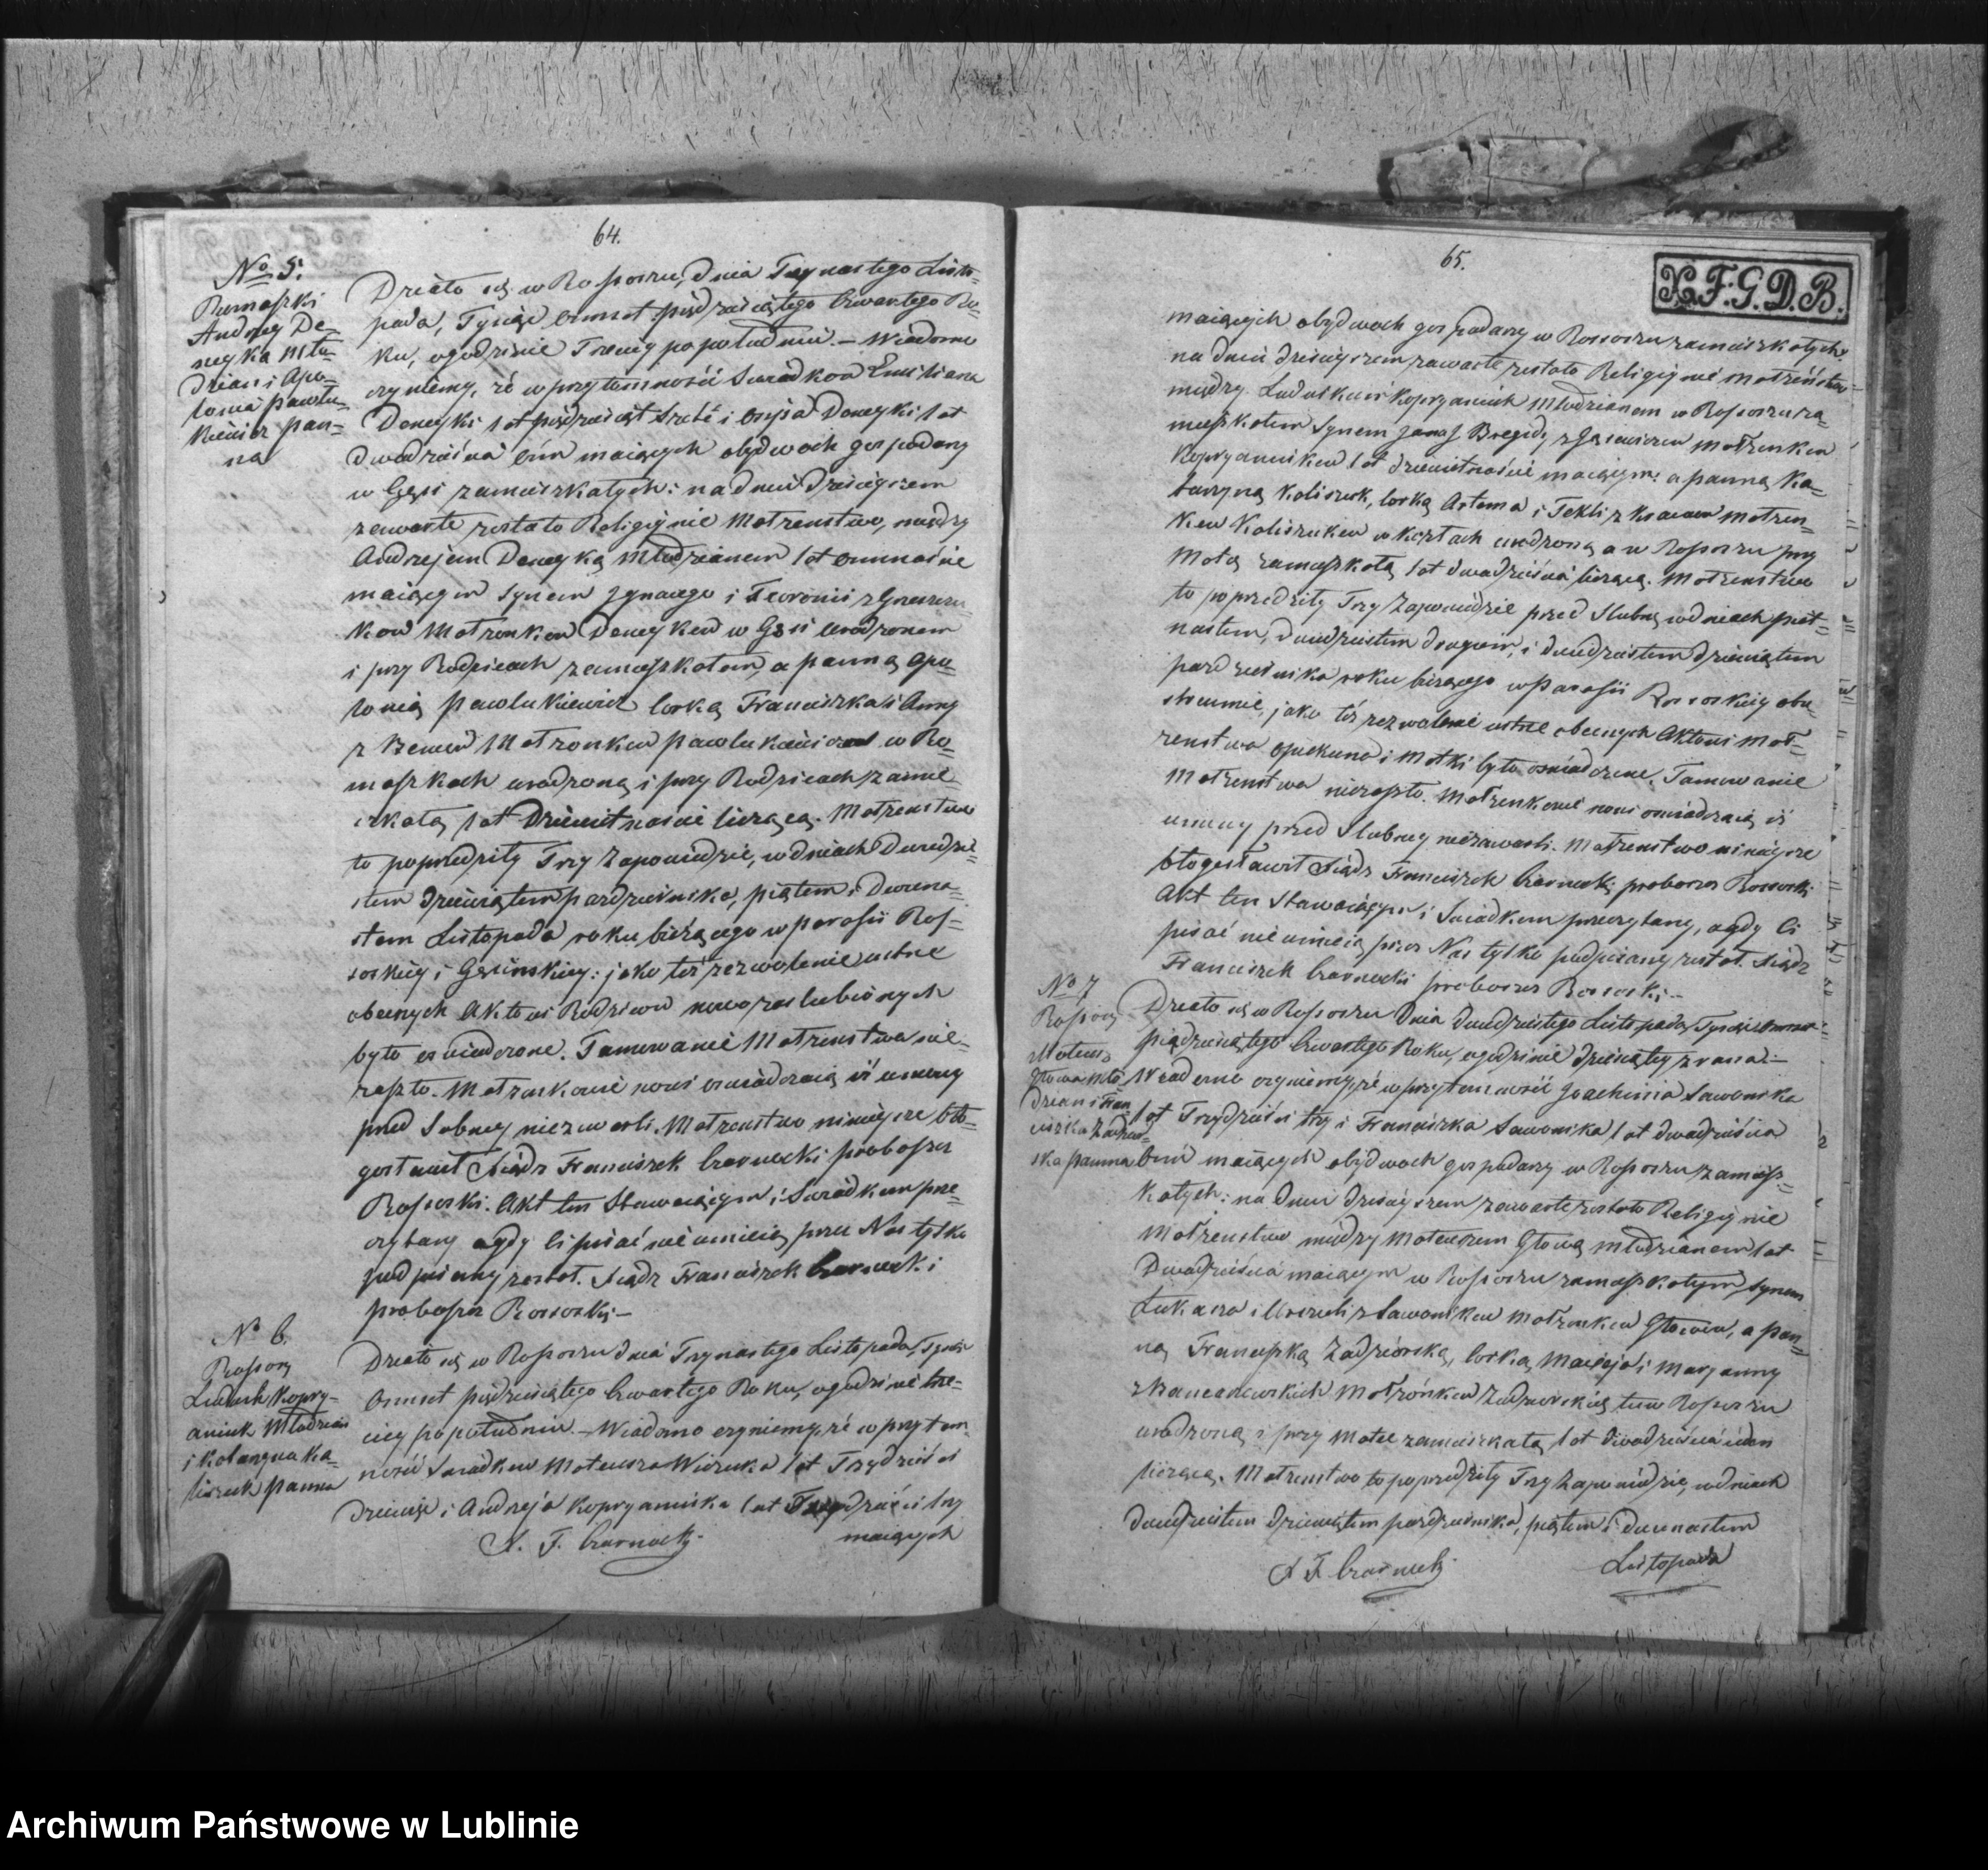 64.
No 5.
Romaszki
Andrzey De-
neyka Mło-
dzian i Apo-
lonia Pawlu-
kiewicz pan-
na
Działo się w Rossoszu, dnia Trzynastego Listo-
pada, Tysiąc ośmset piędziesiątego Czwartego Ro-
ku, o godzinie Trzeciey po południu. – Wiadomo
czyniemy, że w przytomności Swiadków Emiliana
Deneyki lat pięździesiąt sześć i Deneyki lat
dwadzieścia ośm maiących obydwoch gospodarzy
w Gęsi zamieszkałych; na dniu dzisieyszem
zawarte zostało Religijnie Małżenstwo, między
Andrzejem Deneyką Młodzianem lat ośmnaście
maiącym Synem Jgnacego i Teronii z
ków Małżonków Deneyków w Gęsi urodzonem
i przy Rodzicach zamieszkałem, a panną Apo-
lonią Pawlukiewicz corką Franciszka i Anny
z Małżonków Pawlukiewiczow w Ro-
maszkach urodzoną i przy Rodzicach zamie-
szkałą lat Dziewietnaście liczącą. Małżenstwo
to poprzedziły Trzy Zapowiedzie, w dniach Dwudzie-
stem dziewiątem pazdziernika, piątem i Dwuna-
stem Listopada roku bieżącego w parafii Ros-
soskiey i Gęsinskiey: jako też zezwolenie ustne
obecnych Aktowi Rodziców nowozaslubionych
było oswiadczone. Tamowanie Małżenstwa nie-
zaszło. Małżonkowie nowi oswiadczaią iż umowy
przed Slubney niezawarli. Małżenstwo ninieysze bło-
gosławił Xiądz Franciszek Czarnecki proboszcz
Rossoski. Akt ten Stawaiącym i Swiadkom prze-
czytany a gdy Ci pisać nie umieią przez Nas tylko
podpisany został. Xiądz Franciszek Czarnecki
proboszcz Rossoski –
No 6.
Rossosz
Ludwik Kopry-
aniuk Młodzian
i Katarzyna Ka-
liszuk panna
Działo się w Rossoszu dnia Trzynastego Listopada, Tysiąc
ośmset pięździesiątego Czwartego Roku, o godzinie trze-
ciey po południu. – Wiadomo czyniemy, że w przytom-
ności Swiadków Mateusza Wiszuka lat Trzydzieści
dziewięć i Andrzeja Kopryaniuka lat Trzydzieści trzy
X. F. Czarnecki
maiących
65.
X.F.G.D.B.
maiących obydwoch gospodarzy w Rossoszu zamieszkałych:
na dniu dzisieyszem zawarte zostało Religijnie Małżeństwo
między Ludwikiem Kopryaniuk Młodzianem w Rossoszu za-
mieszkałem Synem Brygidy z Małżonków
Kopryaniuków lat dziewietnaście maiącym: a panną Ka-
tarzyną Kaliszuk, corką Artema i Tekli z Małżon-
ków Kaliszuków w urodzoną a w Rossoszu przy
Matce zamieszkałą lat dwadzieścia liczącą. Małżenstwo
to poprzedziły Trzy Zapowiedzie przed Slubne w dniach piet-
nastem, dwudziestem drugiem, i dwudziestem dziewiątem
pazdziernika roku bieżącego w Parafii Rossoskiey obu-
stronnie, jako też zezwolenie ustne obecnych Aktowi Mał-
żenstwa opiekuna i Matki było oswiadczone. Tamowanie
Małżenstwa niezaszło. Małżonkowie nowi oswiadczaią iż
umowy przed Slubney niezawarli. Małżenstwo ninieysze
błogosławił Xiądz Franciszek Czarnecki proboszcz Rossoski
Akt ten Stawaiącym i Swiadkom przeczytany, a gdy Ci
pisać nie umieią przez Nas tylko podpisany został. Xiądz
Franciszek Czarnecki proboszcz Rossoski. –
No 7
Rossosz
Mateusz
Głowa Mło-
dzian i Fran-
ciszka Zadzior-
ska panna
Działo się w Rossoszu Dnia dwudziestego Listopada, Tysiąc ośmset
pięździesiątego Czwartego Roku, o godzinie dziesiątey z rana. –
Wiadomo czyniemy, że w przytomności Joachima Sawoniuka
lat Trzydzieści trzy i Franciszka Sawoniuka lat dwadzieścia
ośm maiących obydwoch gospodarzy w Rossoszu zamiesz-
kałych: na dniu dzisieyszem zawarte zostało Religijnie
Małżenstwo między Mateuszem Głową młodzianem lat
Dwadzieścia maiącym w Rossoszu zamieszkałym, synem
Łukasza i Urszuli z Sawoniuków Małżonków Głowów, a pan-
ną Franciszką Zadziórską, corką Macieja i Maryanny
z Małżonków Zadziorskich tu w Rossoszu
urodzoną i przy Matce zamieszkałą lat dwadzieścia ieden
liczącą. Małżenstwo to poprzedziły Trzy Zapowiedzie, w dniach
dwudziestem dziewiątem pazdziernika, piątem i dwunastem
X F Czarnecki
Listopada
Archiwum Państwowe w Lublinie